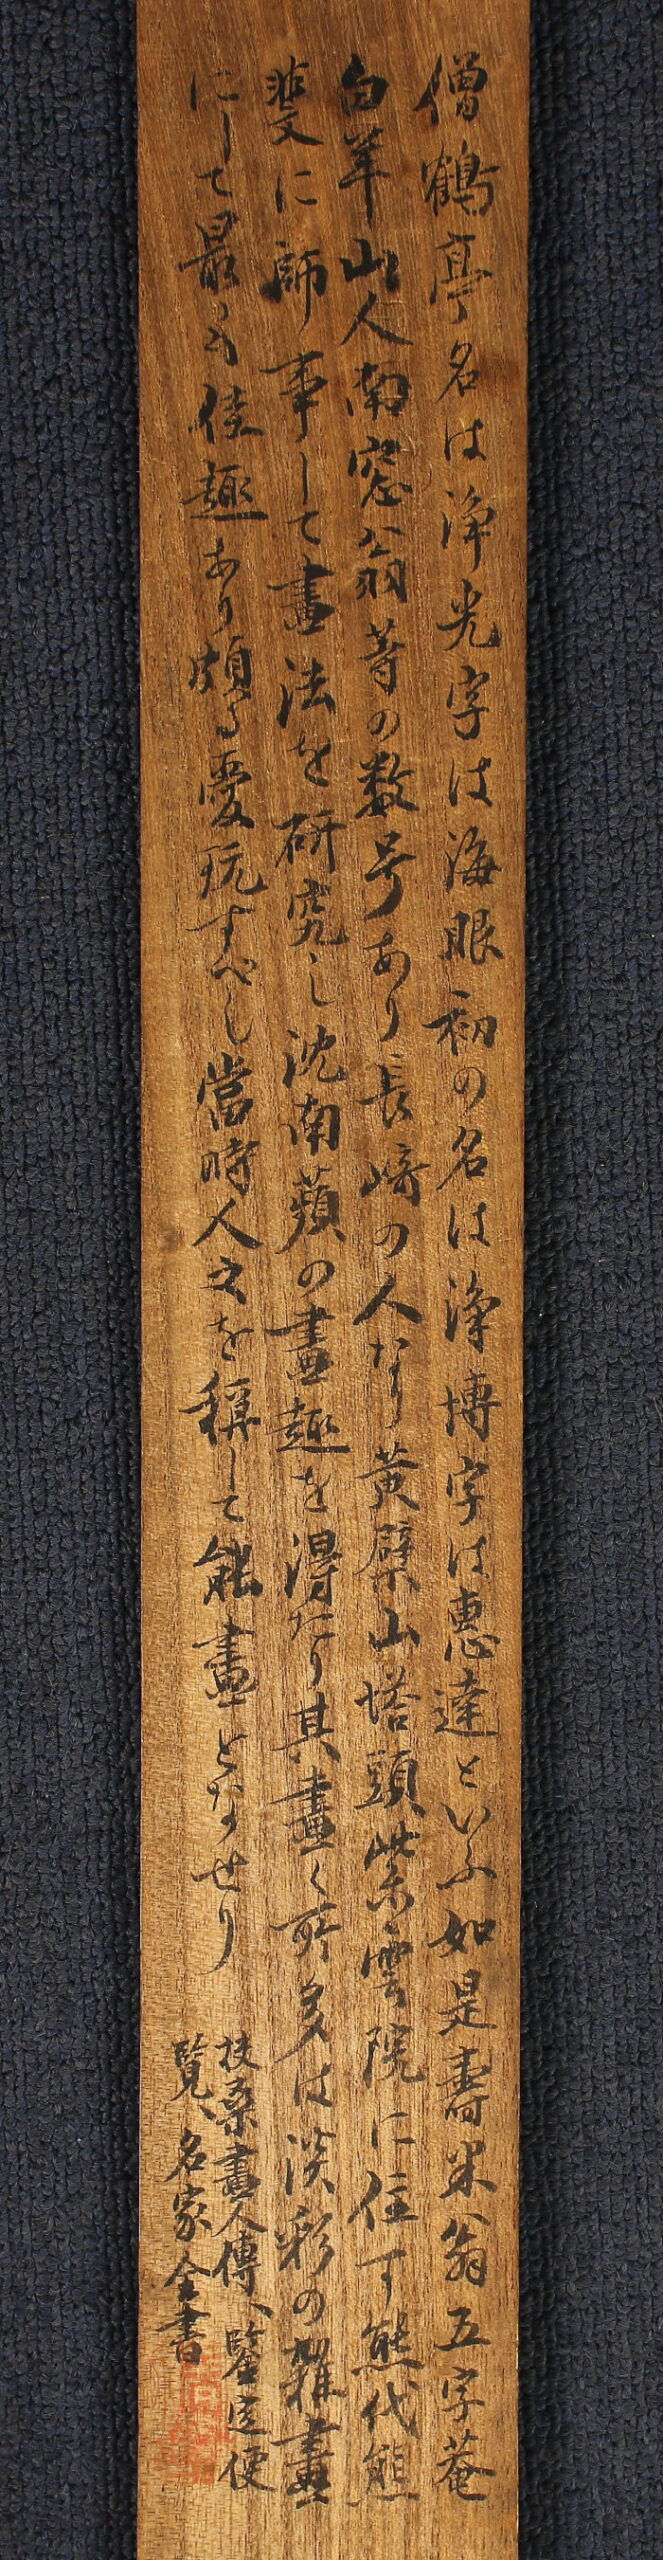 僧鶴亭名は浄光字は海眼初の名は浄博字は恵達といふ如是壽米翁五字菴
白羊山人南窓翁等の数号あり長崎の人なり黄檗山塔頭紫雲院に住す熊代熊
斐に師事して畫法を研究し沈南蘋の畫趣を得たり其畫く所多は淡彩の雑畫
にして最も佳趣あり頗る愛玩すべし當時人之を稱して能畫となせり
扶桑畫人傳、鑒定便
覧、名家全書